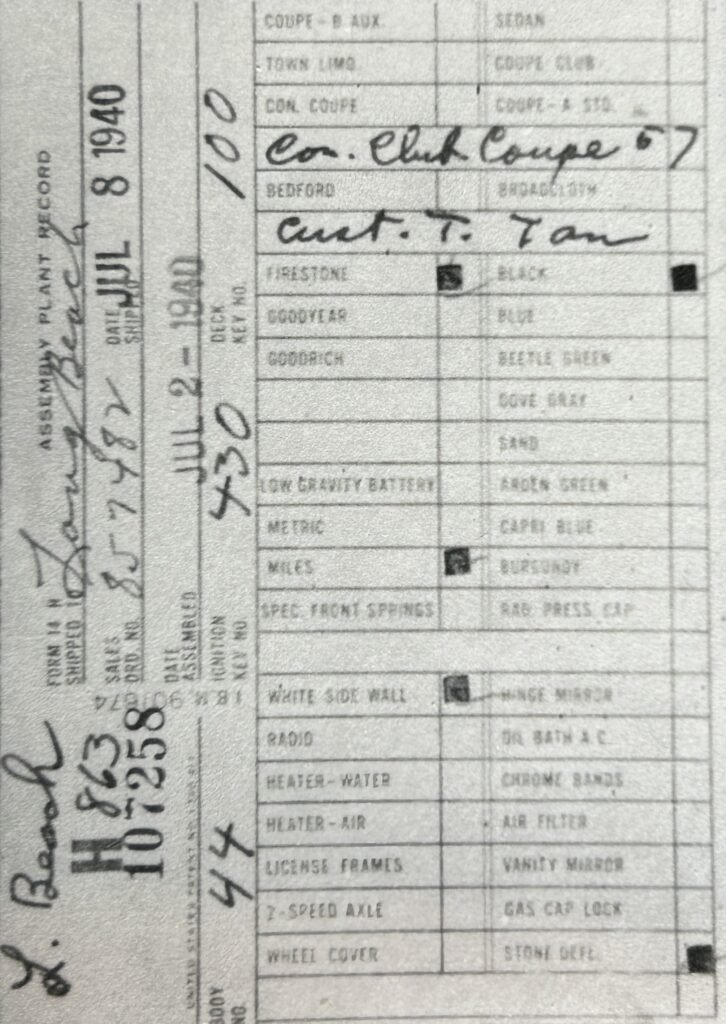 L. Beach
H 863
107258
FORM 14 H ASSEMBLY PLANT RECORD
SHIPPED TO Long Beach
SALES ORD. NO. 857482 DATE SHIPPED JUL 8 1940
DATE ASSEMBLED JUL 2 - 1940
IBM 901674
UNITED STATES PATENT NO.
BODY NO. 44 IGNITION KEY NO 430 DECK KEY NO. 100
COUPE - B AUX. SEDAN
TOWN LIMO. COUPE CLUB
CON. COUPE COUPE - A STD.
Con. Club Coupe 57
BEDFORD BROADCLOTH
Cust. T. Tan
FIRESTONE BLACK
GOODYEAR BLUE
GOODRICH BEETLE GREEN
COVE GRAY
SAND
LOW GRAVITY BATTERY ARDEN GREEN
METRIC CAPRI BLUE
MILES BURGUNDY
SPEC. FRONT SPRINGS RAD. PRESS CAP
WHITE SIDE WALL HINGE MIRROR
RADIO OIL BATH A.C.
HEATER - WATER CHROME BANDS
HEATER - AIR AIR FILTER
LICENSE FRAMES VANITY MIRROR
2-SPEED AXLE GAS CAP LOCK
WHEEL COVER STONE DEFL.